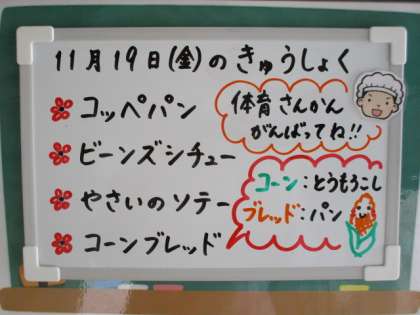 11月19日(金)のきゅうしょく
コッペパン
ビーンズシチュー
やさいのソテー
コーンブレッド
体育さんかん
がんばってね!!
コーン:とうもろこし
ブレッド:パン